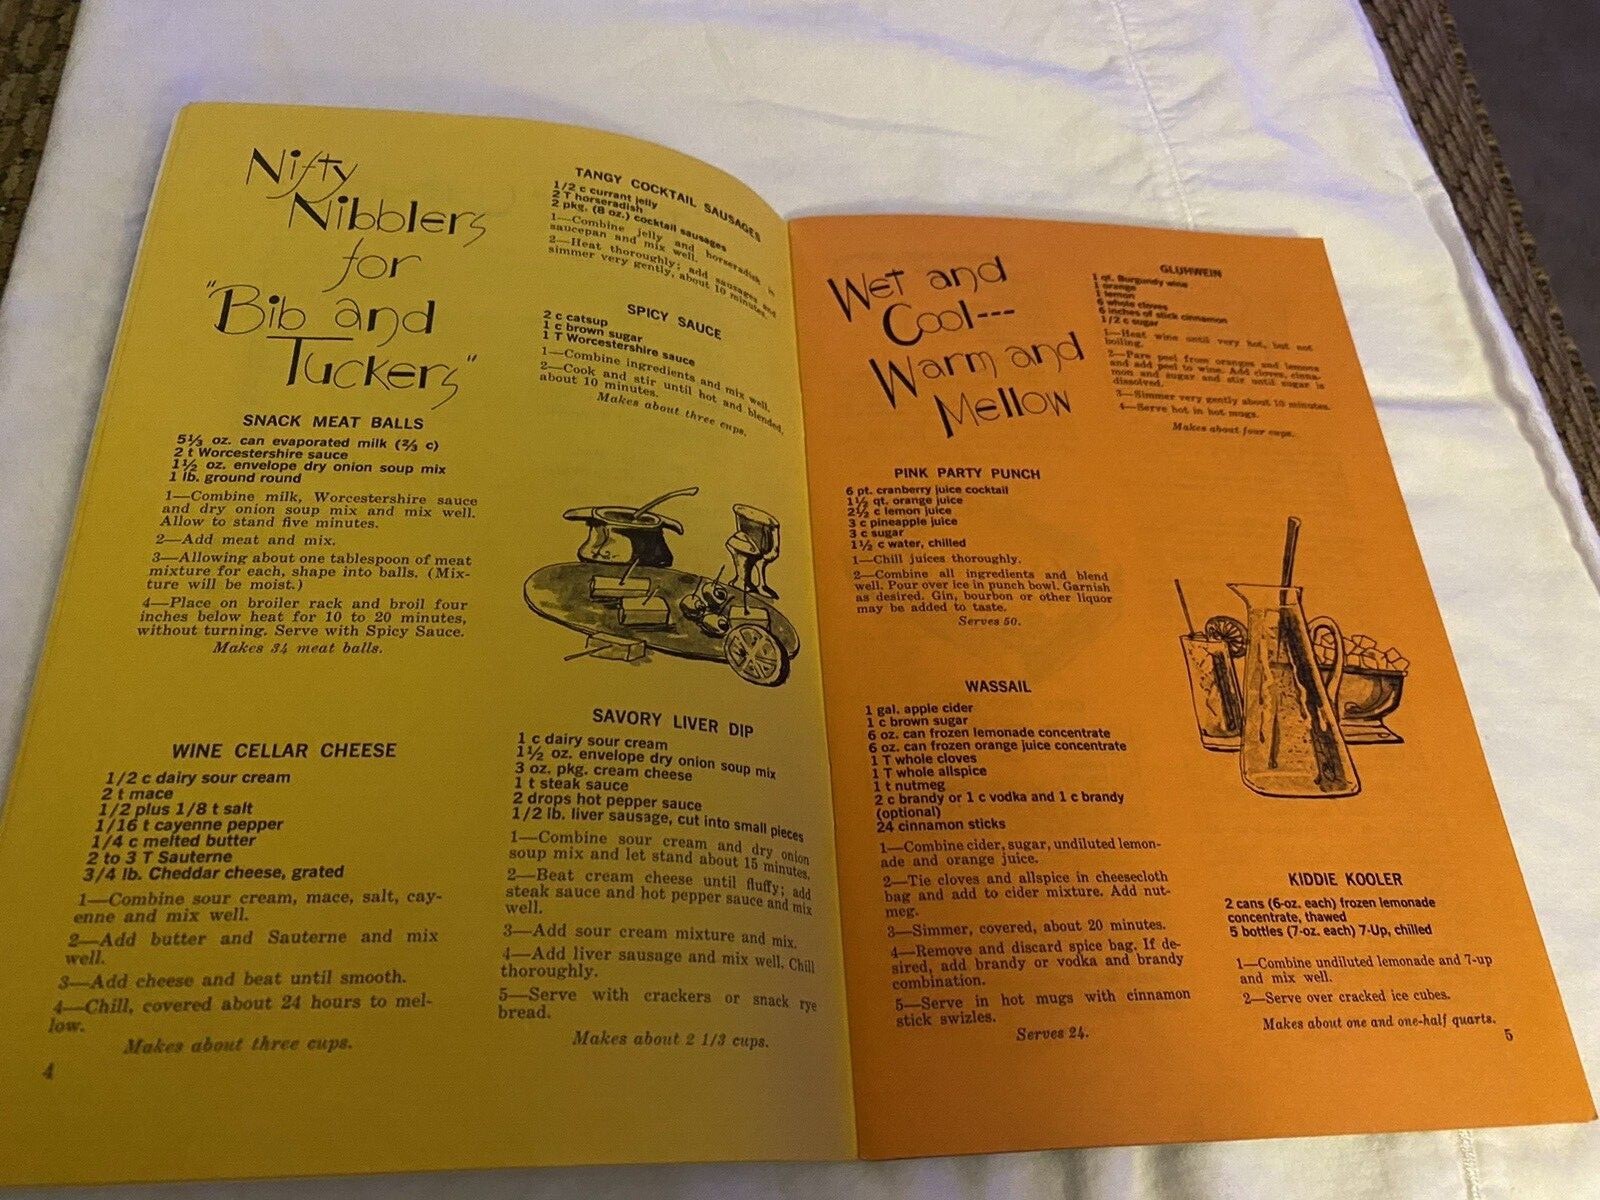 Nifty
Nibblers
for
"Bib and
Tuckers"
SNACK MEAT BALLS
5⅓ oz. can evaporated milk (⅔ c)
2 t Worcestershire sauce
1½ oz. envelope dry onion soup mix
1 lb. ground round
1—Combine milk, Worcestershire sauce
and dry onion soup mix and mix well.
Allow to stand five minutes.
2—Add meat and mix.
3—Allowing about one tablespoon of meat
mixture for each, shape into balls. (Mix-
ture will be moist.)
4—Place on broiler rack and broil four
inches below heat for 10 to 20 minutes,
without turning. Serve with Spicy Sauce.
Makes 34 meat balls.
WINE CELLAR CHEESE
1/2 c dairy sour cream
2 t mace
1/2 plus 1/8 t salt
1/16 t cayenne pepper
1/4 c melted butter
2 to 3 T Sauterne
3/4 lb. Cheddar cheese, grated
1—Combine sour cream, mace, salt, cay-
enne and mix well.
2—Add butter and Sauterne and mix
well.
3—Add cheese and beat until smooth.
4—Chill, covered about 24 hours to mel-
low.
Makes about three cups.
4
TANGY COCKTAIL SAUSAGES
1/2 c currant jelly
2 T horseradish
2 pkg. (8 oz.) cocktail sausages
1—Combine jelly and horseradish in
saucepan and mix well.
2—Heat thoroughly; add sausages and
simmer very gently, about 10 minutes.
SPICY SAUCE
2 c catsup
1 c brown sugar
1 T Worcestershire sauce
1—Combine ingredients and mix well.
2—Cook and stir until hot and blended,
about 10 minutes.
Makes about three cups.
SAVORY LIVER DIP
1 c dairy sour cream
1½ oz. envelope dry onion soup mix
3 oz. pkg. cream cheese
1 t steak sauce
2 drops hot pepper sauce
1/2 lb. liver sausage, cut into small pieces
1—Combine sour cream and dry onion
soup mix and let stand about 15 minutes.
2—Beat cream cheese until fluffy; add
steak sauce and hot pepper sauce and mix
well.
3—Add sour cream mixture and mix.
4—Add liver sausage and mix well. Chill
thoroughly.
5—Serve with crackers or snack rye
bread.
Makes about 2 1/3 cups.
Wet and
Cool---
Warm and
Mellow
PINK PARTY PUNCH
6 pt. cranberry juice cocktail
1½ qt. orange juice
2½ c lemon juice
3 c pineapple juice
3 c sugar
1½ c water, chilled
1—Chill juices thoroughly.
2—Combine all ingredients and blend
well. Pour over ice in punch bowl. Garnish
as desired. Gin, bourbon or other liquor
may be added to taste.
Serves 50.
WASSAIL
1 gal. apple cider
1 c brown sugar
6 oz. can frozen lemonade concentrate
6 oz. can frozen orange juice concentrate
1 T whole cloves
1 T whole allspice
1 t nutmeg
2 c brandy or 1 c vodka and 1 c brandy
(optional)
24 cinnamon sticks
1—Combine cider, sugar, undiluted lemon-
ade and orange juice.
2—Tie cloves and allspice in cheesecloth
bag and add to cider mixture. Add nut-
meg.
3—Simmer, covered, about 20 minutes.
4—Remove and discard spice bag. If de-
sired, add brandy or vodka and brandy
combination.
5—Serve in hot mugs with cinnamon
stick swizles.
Serves 24.
GLUHWEIN
1 qt. Burgundy wine
1 orange
1 lemon
6 whole cloves
6 inches of stick cinnamon
1/2 c sugar
1—Heat wine until very hot, but not
boiling.
2—Pare peel from oranges and lemons
and add peel to wine. Add cloves, cinna-
mon and sugar and stir until sugar is
dissolved.
3—Simmer very gently about 10 minutes.
4—Serve hot in hot mugs.
Makes about four cups.
KIDDIE KOOLER
2 cans (6-oz. each) frozen lemonade
concentrate, thawed
5 bottles (7-oz. each) 7-Up, chilled
1—Combine undiluted lemonade and 7-up
and mix well.
2—Serve over cracked ice cubes.
Makes about one and one-half quarts.
5